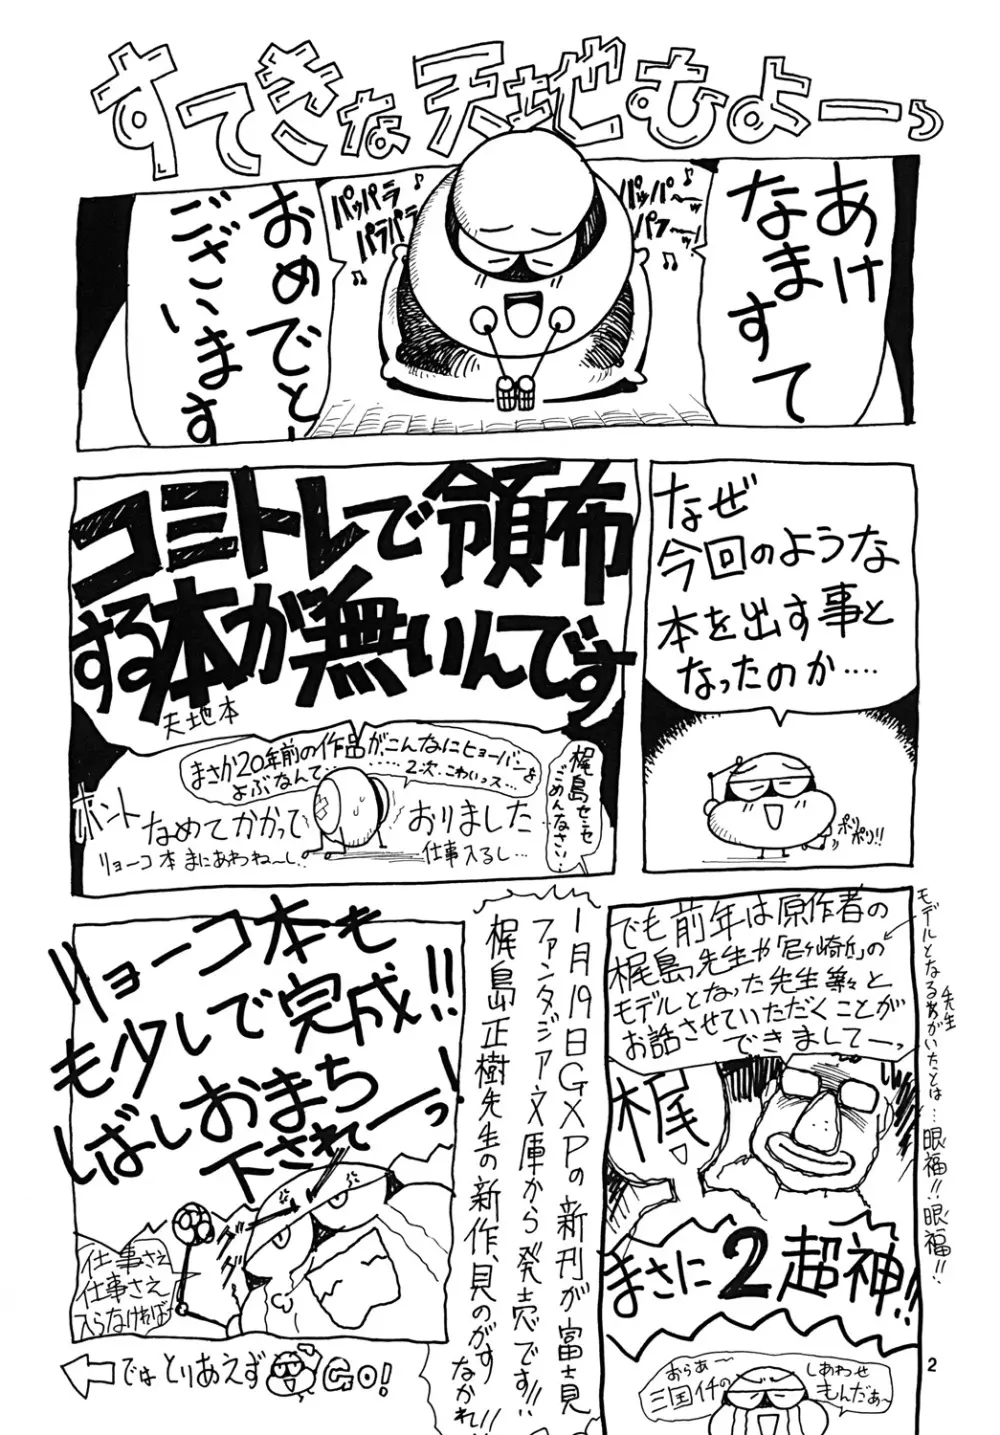 すてきな天地むよーっ
あけ
なまして
おめでとー
ございます
パッパー
パフー
♪
パッパラ
パラパラ
なぜ
今回のような
本を出す事と
なったのか‥‥
ポリ
ポリ!!
コミトレで領布
する本が無いんです
天地本
まさか20年前の作品が、こんなにヒョーバンを
よぶなんて‥‥‥‥
2次、こわいっス‥
梶島センセ
ごめんなさい‥
ホント
なめてかかって
おりました
リョーコ本まにあわね〜し‥
仕事入るし‥
でも前年は原作者の
梶島先生や「尼ヶ崎丘」の
モデルとなった先生等々と
お話させていただくことが
できましてーっ
モデルとなる先生
がいたとは‥眼福!!眼福!!‥
梶
まさに2超神!!
おらぁ〜
三国イチの
しあわせ
もんだぁ〜
1月19日GXPの新刊が富士見
ファンタジア文庫から発売です!!
梶島正樹先生の新作、見のがす
なかれ!!
リョーコ本も
も少しで完成!!
しばしおまち
下されーっ!
ダダダ
仕事さえ
仕事さえ
入らなければ
ではとりあえず
GO!
2